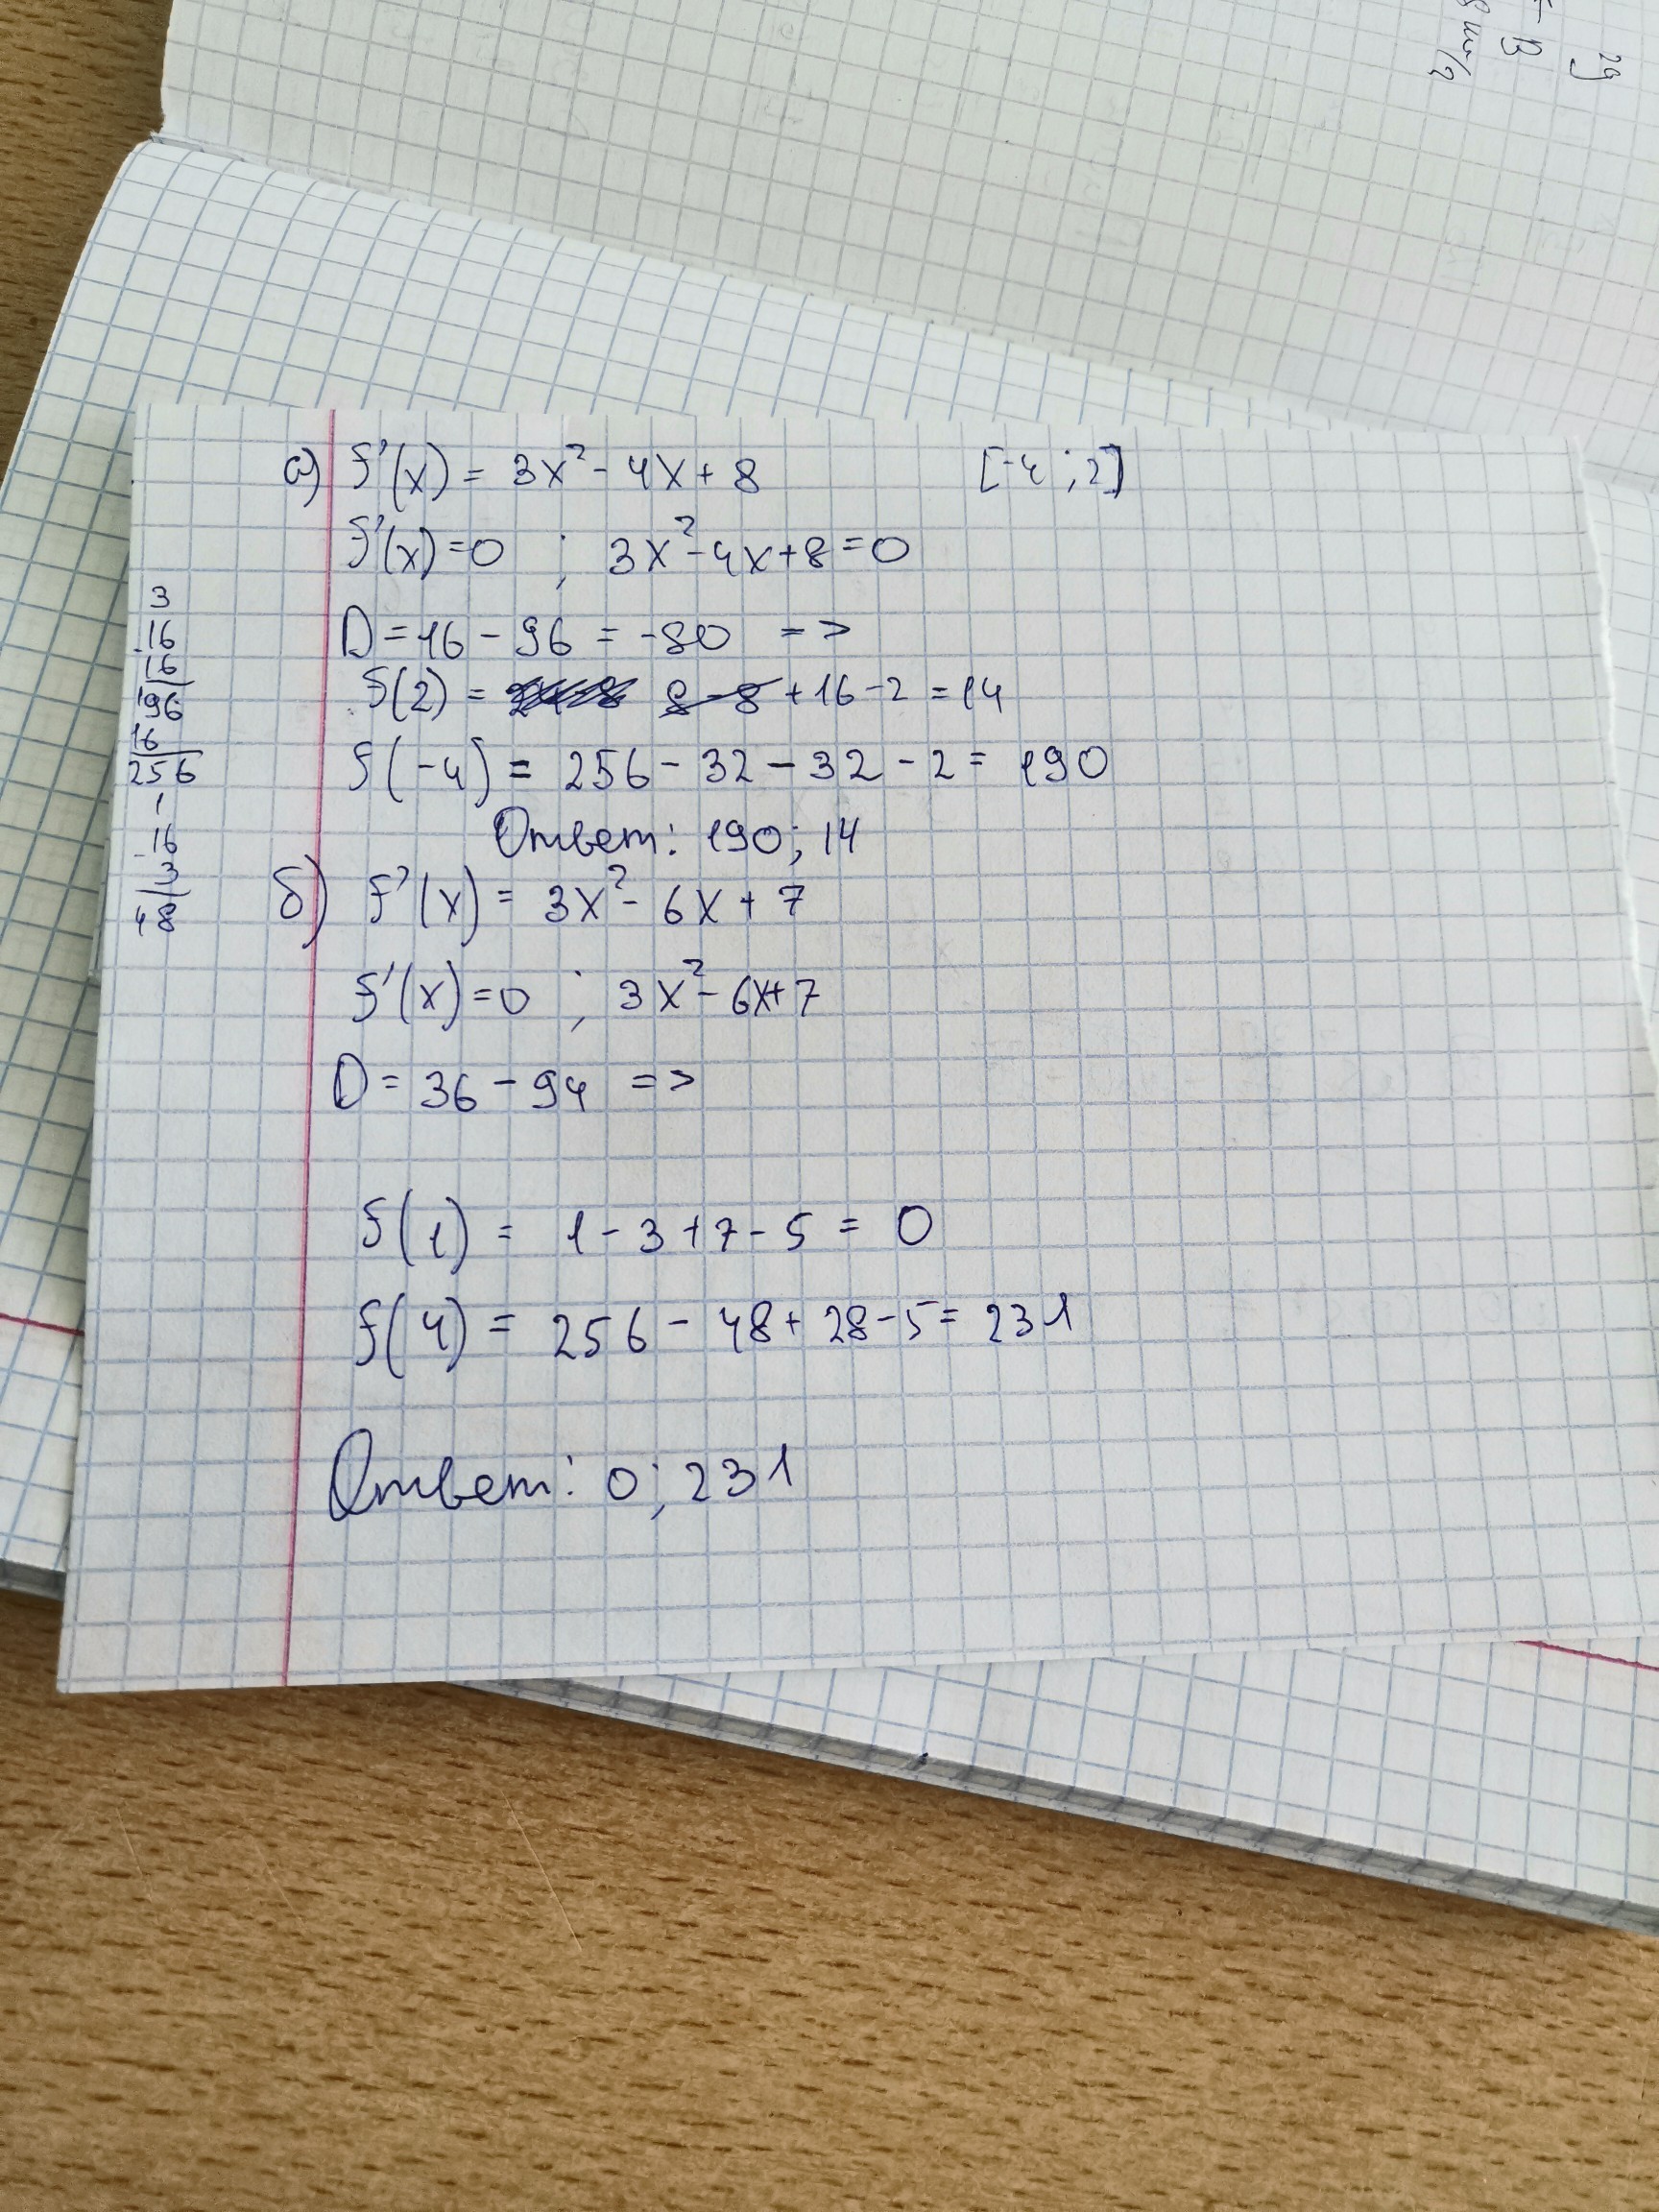 29
- В
8 ш/2
а) f'(x) = 3x² - 4x + 8 [-4 ; 2]
f'(x) = 0 ; 3x² - 4x + 8 = 0
D = 16 - 96 = -80 =>
f(2) = 8 - 8 + 16 - 2 = 14
f(-4) = 256 - 32 - 32 - 2 = 190
Ответ: 190; 14
б) f'(x) = 3x² - 6x + 7
f'(x) = 0 ; 3x² - 6x + 7
D = 36 - 94 =>
f(1) = 1 - 3 + 7 - 5 = 0
f(4) = 256 - 48 + 28 - 5 = 231
Ответ: 0; 231
3
16
16
196
16
256
1
16
3
48